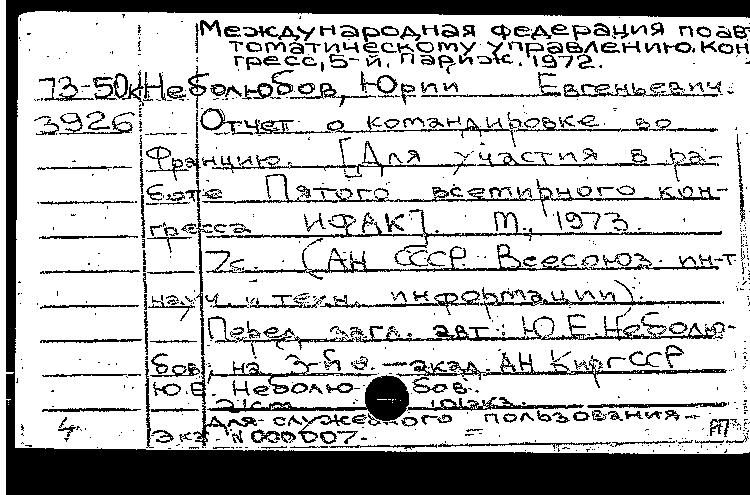 Международная федерация по ав
томатическому управлению. Кон
гресс, 5-й, Париж. 1972.
73-50к Неболюбов, Юрий Евгеньевич.
3926 Отчет о командировке во
Францию. [Для участия в ра-
боте Пятого всемирного кон-
гресса ИФАК]. М., 1973.
7с. (АН СССР. Всесоюз. ин-т
науч. и техн. информации).
Перед загл. авт.: Ю.Е. Неболю-
бов, на 3-й с. - акад. АН КиргССР
Ю.Е. Неболюбов.
21cm. 10 экз.
Для служебного пользования-
4 Экз. N000007. РП